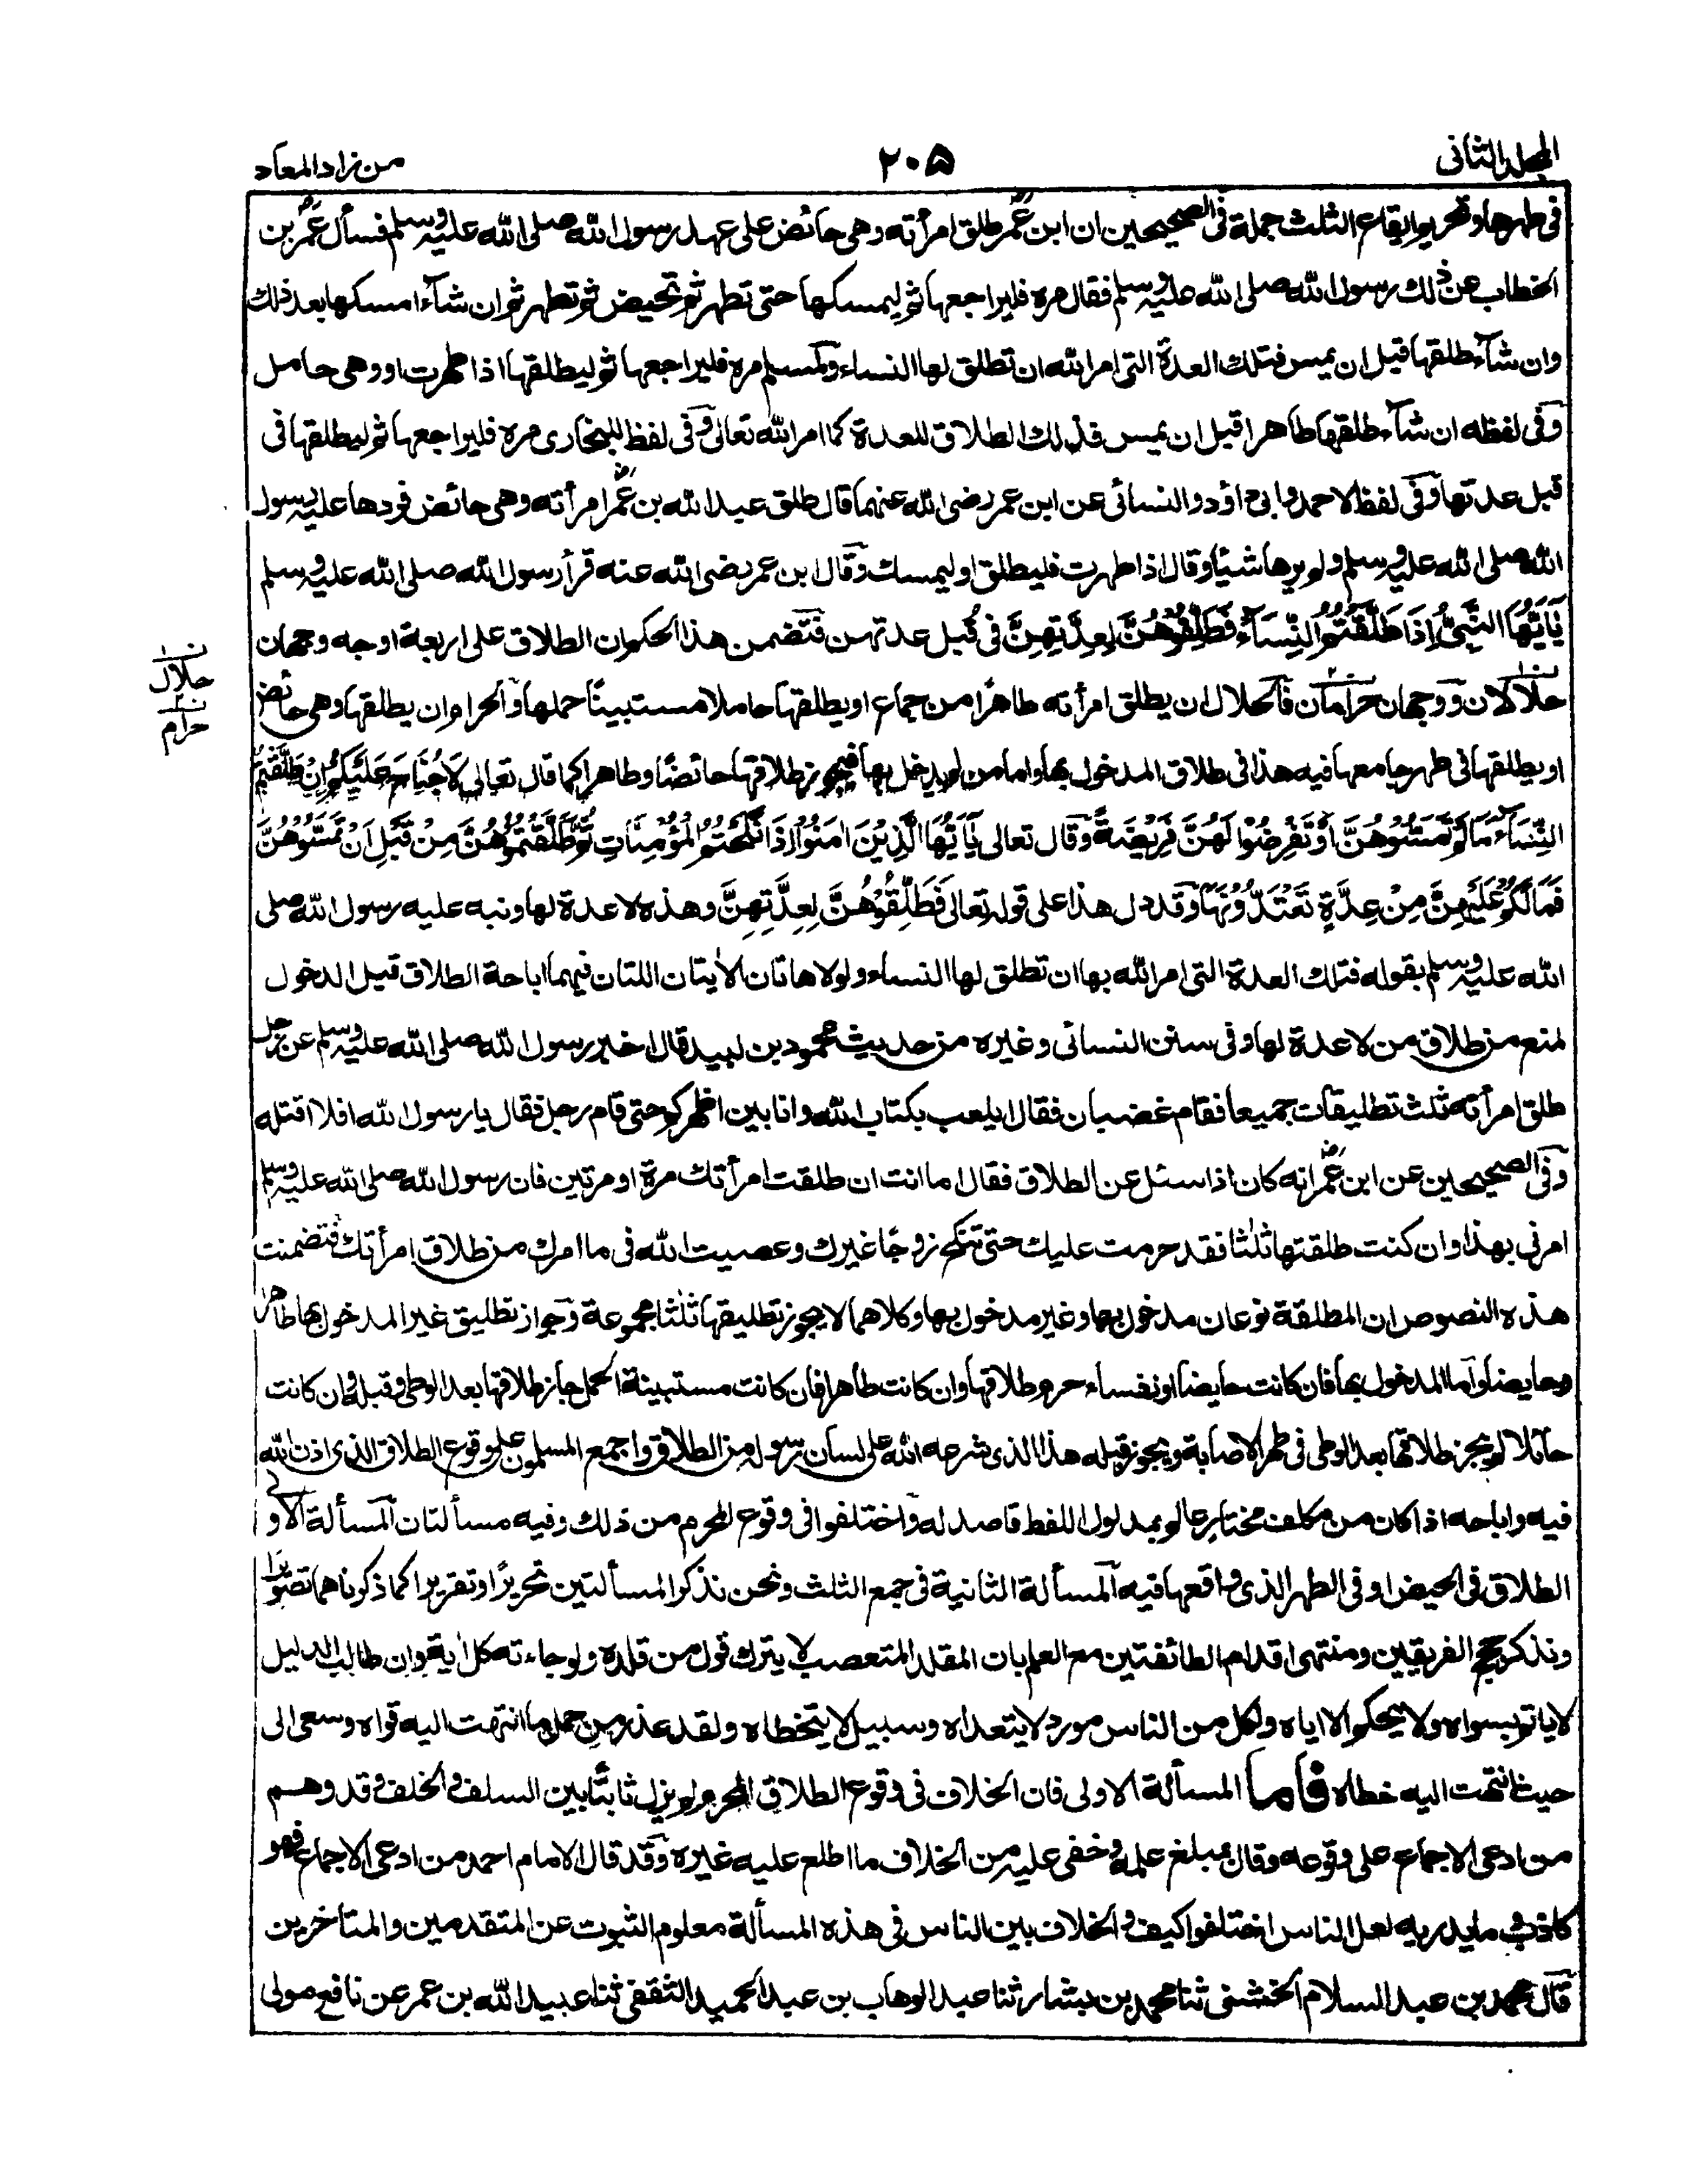 المجلد الثانى
٢٠٥
من زاد المعاد
فى طهرها وتحريم ايقاع الثلث جملة فى الصحيحين ان ابن عمر طلق امرأته وهى حائض على عهد رسول الله صلى الله عليه وسلم فسأل عمر بن
الخطاب عن ذلك رسول الله صلى الله عليه وسلم فقال مره فليراجعها ثم ليمسكها حتى تطهر ثم تحيض ثم تطهر ثم ان شآء امسكها بعد ذلك
وان شآء طلقها قبل ان يمس فتلك العدة التى امر الله ان تطلق لها النساء ولمسلم مره فليراجعها ثم ليطلقها اذا طهرت او وهى حامل
وفى لفظه ان شآء طلقها طاهرا قبل ان يمس فذلك الطلاق للعدة كما امر الله تعالى وفى لفظ للبخارى مره فليراجعها ثم ليطلقها فى
قبل عدتها وفى لفظ لاحمد وابى داؤد والنسائى عن ابن عمر رضى الله عنهما قال طلق عبد الله بن عمر امرأته وهى حائض فردها عليه رسول
الله صلى الله عليه وسلم ولم يرها شيئا وقال اذا طهرت فليطلق او ليمسك وقال ابن عمر رضى الله عنه قرأ رسول الله صلى الله عليه وسلم
يَآ اَيُّهَا النَّبِىُّ اِذَا طَلَّقْتُمُ النِّسَآءَ فَطَلِّقُوْهُنَّ لِعِدَّتِهِنَّ فى قُبل عدتهن فتضمن هذا الحكم ان الطلاق على اربعة اوجه وجهان
حلالان ووجهان حرامان فالحلال ان يطلق امرأته طاهرًا من جماع او يطلقها حاملا مستبينًا حملها والحرام ان يطلقها وهى حائض
ن١ حلال
ن٢ حرام
او يطلقها فى طهر جامعها فيه هذا فى طلاق المدخول بها واما من لم يدخل بها فيجوز طلاقها حائضًا وطاهرا كما قال تعالى لَا جُنَاحَ عَلَيْكُمْ اِنْ طَلَّقْتُمُ
النِّسَآءَ مَا لَمْ تَمَسُّوْهُنَّ اَوْ تَفْرِضُوْا لَهُنَّ فَرِيْضَةً وقال تعالى يَآ اَيُّهَا الَّذِيْنَ اٰمَنُوْا اِذَا نَكَحْتُمُ الْمُؤْمِنَاتِ ثُمَّ طَلَّقْتُمُوْهُنَّ مِنْ قَبْلِ اَنْ تَمَسُّوْهُنَّ
فَمَا لَكُمْ عَلَيْهِنَّ مِنْ عِدَّةٍ تَعْتَدُّوْنَهَا وقد دل هذا على قوله تعالى فَطَلِّقُوْهُنَّ لِعِدَّتِهِنَّ وهذه لا عدة لها ونبه عليه رسول الله صلى
الله عليه وسلم بقوله فتلك العدة التى امر الله بها ان تطلق لها النساء ولولا هاتان الاٰيتان اللتان فيهما اباحة الطلاق قبل الدخول
لمنع من طلاق من لا عدة لها وفى سنن النسائى وغيره من حديث محمود بن لبيد قال اخبر رسول الله صلى الله عليه وسلم عن رجل
طلق امرأته ثلث تطليقات جميعا فقام غضبان فقال ايلعب بكتاب الله وانا بين اظهركم حتى قام رجل فقال يا رسول الله افلا اقتله
وفى الصحيحين عن ابن عمر انه كان اذا سئل عن الطلاق فقال اما انت ان طلقت امرأتك مرة او مرتين فان رسول الله صلى الله عليه وسلم
امرنى بهذا وان كنت طلقتها ثلٰثا فقد حرمت عليك حتى تنكح زوجًا غيرك وعصيت الله فى ما امرك من طلاق امرأتك فتضمنت
هذه النصوص ان المطلقة نوعان مدخول بها وغير مدخول بها وكلاهما لا يجوز تطليقها ثلٰثا مجموعة وجواز تطليق غير المدخول بها طاهرا
وحايضا وآما المدخول بها فان كانت حايضا او نفساء حرم طلاقها وان كانت طاهرا فان كانت مستبينة الحمل جاز طلاقها بعد الوطى وقبله وان كانت
حآئلا لم يجز طلاقها بعد الوطى فى طهر الاصابة ويجوز قبله هذا الذى شرعه الله على لسان رسوله من الطلاق واجمع المسلمون على وقوع الطلاق الذى اذن الله
فيه واباحه اذا كان من مكلف مختار عالم بمدلول اللفظ قاصد له واختلفوا فى وقوع المحرم من ذلك وفيه مسألتان المسألة الاولى
الطلاق فى الحيض او فى الطهر الذى واقعها فيه المسألة الثانية فى جمع الثلث ونحن نذكر المسألتين تحريرًا وتقريرا كما ذكرناهما تصويرًا
ونذكر حجج الفريقين ومنتهى اقدام الطائفتين مع العلم بان المقلد المتعصب لا يترك قول من قلده ولو جاءته كل اٰية وان طالب الدليل
لا ياتم بسواه ولا يحكم الا اياه ولكل من الناس مورد لا يتعداه وسبيل لا يتخطاه ولقد عذر من حمل ما انتهت اليه قواه وسعى الى
حيث انتهت اليه خطاه فاما المسألة الاولى فان الخلاف فى وقوع الطلاق المحرم لم يزل ثابتًا بين السلف والخلف وقد وهم
من ادعى الاجماع على وقوعه وقال بمبلغ علمه وخفى عليه من الخلاف ما اطلع عليه غيره وقد قال الامام احمد من ادعى الاجماع فهو
كاذب وما يدريه لعل الناس اختلفوا كيف والخلاف بين الناس فى هذه المسألة معلوم الثبوت عن المتقدمين والمتاخرين
قال محمد بن عبد السلام الخشنى ثنا محمد بن بشار ثنا عبد الوهاب بن عبد الحميد الثقفى ثنا عبيد الله بن عمر عن نافع مولى